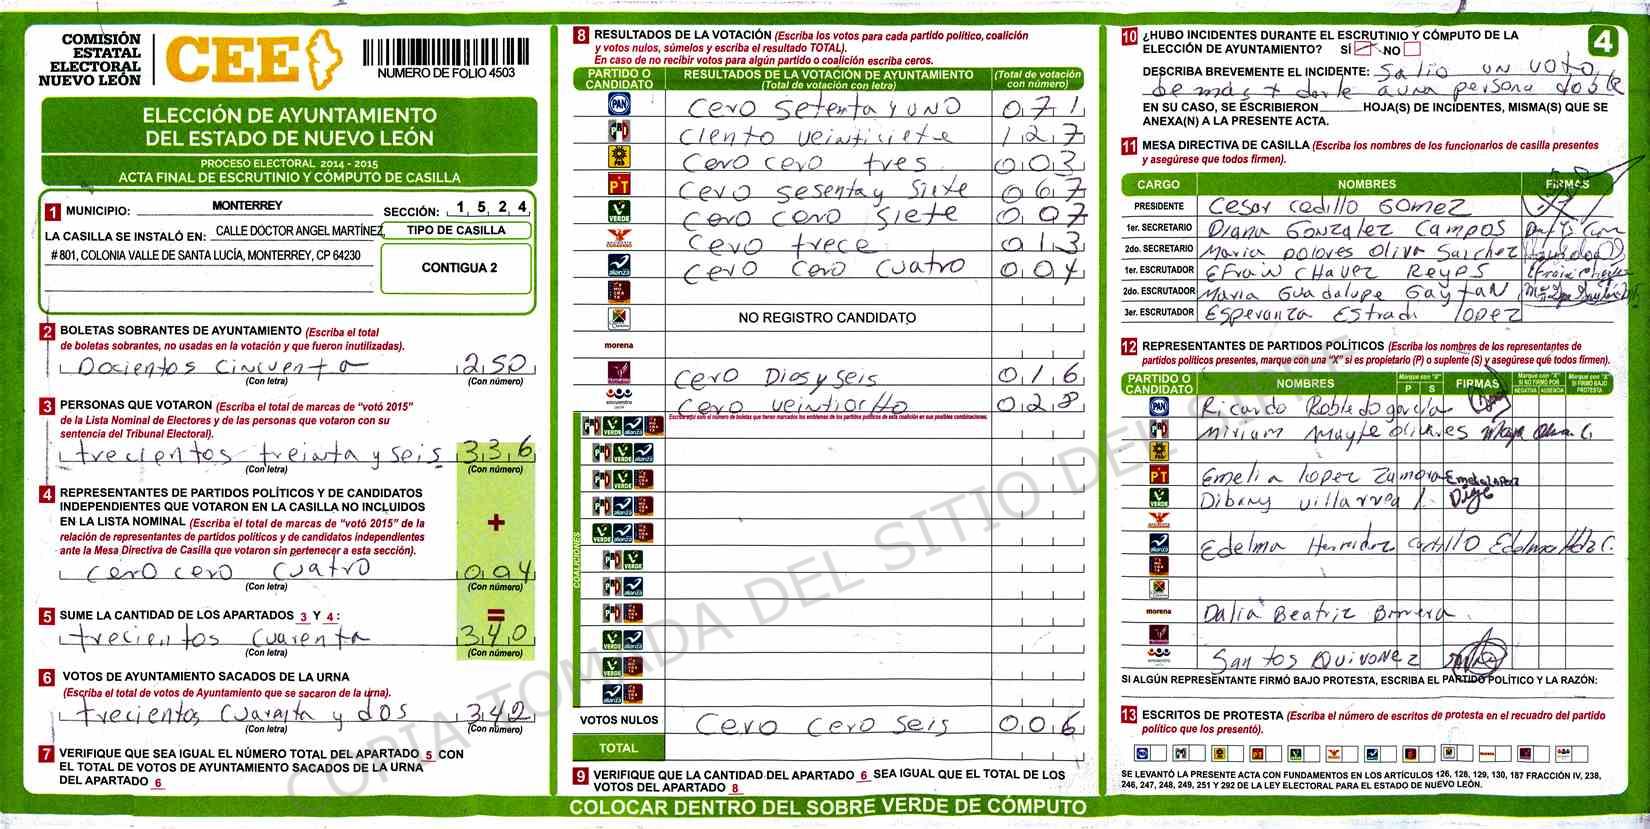 COMISIÓN
ESTATAL
ELECTORAL
NUEVO LEÓN
CEE
NUMERO DE FOLIO 4503
ELECCIÓN DE AYUNTAMIENTO
DEL ESTADO DE NUEVO LEÓN
PROCESO ELECTORAL 2014 - 2015
ACTA FINAL DE ESCRUTINIO Y CÓMPUTO DE CASILLA
1 MUNICIPIO: MONTERREY SECCIÓN: 1 5 2 4
LA CASILLA SE INSTALÓ EN: CALLE DOCTOR ANGEL MARTÍNEZ, TIPO DE CASILLA
# 801, COLONIA VALLE DE SANTA LUCÍA, MONTERREY, CP 64230
CONTIGUA 2
2 BOLETAS SOBRANTES DE AYUNTAMIENTO (Escriba el total
de boletas sobrantes, no usadas en la votación y que fueron inutilizadas).
Docientos cincuenta 250
(Con letra) (Con número)
3 PERSONAS QUE VOTARON (Escriba el total de marcas de "votó 2015"
de la Lista Nominal de Electores y de las personas que votaron con su
sentencia del Tribunal Electoral).
trecientos treinta y seis 336
(Con letra) (Con número)
4 REPRESENTANTES DE PARTIDOS POLÍTICOS Y DE CANDIDATOS
INDEPENDIENTES QUE VOTARON EN LA CASILLA NO INCLUIDOS
EN LA LISTA NOMINAL (Escriba el total de marcas de "votó 2015" de la
relación de representantes de partidos políticos y de candidatos independientes
ante la Mesa Directiva de Casilla que votaron sin pertenecer a esta sección).
+
cero cero cuatro 004
(Con letra) (Con número)
5 SUME LA CANTIDAD DE LOS APARTADOS 3 Y 4 : =
trecientos cuarenta 340
(Con letra) (Con número)
6 VOTOS DE AYUNTAMIENTO SACADOS DE LA URNA
(Escriba el total de votos de Ayuntamiento que se sacaron de la urna).
trecientos cuarenta y dos 342
(Con letra) (Con número)
7 VERIFIQUE QUE SEA IGUAL EL NÚMERO TOTAL DEL APARTADO 5 CON
EL TOTAL DE VOTOS DE AYUNTAMIENTO SACADOS DE LA URNA
DEL APARTADO 6
8 RESULTADOS DE LA VOTACIÓN (Escriba los votos para cada partido político, coalición
y votos nulos, súmelos y escriba el resultado TOTAL).
En caso de no recibir votos para algún partido o coalición escriba ceros.
PARTIDO O CANDIDATO RESULTADOS DE LA VOTACIÓN DE AYUNTAMIENTO (Total de votación con letra) (Total de votación con número)
PAN cero setenta y uno 071
PRD ciento veintisiete 127
PRD cero cero tres 003
PT cero sesenta y siete 067
VERDE cero cero siete 007
cero trece 013
alianza cero cero cuatro 004
NO REGISTRO CANDIDATO
morena
cero Dios y seis 016
encuentro cero veintiocho 028
COALICIONES
VOTOS NULOS cero cero seis 006
TOTAL
9 VERIFIQUE QUE LA CANTIDAD DEL APARTADO 6 SEA IGUAL QUE EL TOTAL DE LOS
VOTOS DEL APARTADO 8
COLOCAR DENTRO DEL SOBRE VERDE DE CÓMPUTO
4
10 ¿HUBO INCIDENTES DURANTE EL ESCRUTINIO Y CÓMPUTO DE LA
ELECCIÓN DE AYUNTAMIENTO? SÍ NO
DESCRIBA BREVEMENTE EL INCIDENTE: Salio un voto
de mas + darle a una persona doble
EN SU CASO, SE ESCRIBIERON HOJA(S) DE INCIDENTES, MISMA(S) QUE SE
ANEXA(N) A LA PRESENTE ACTA.
11 MESA DIRECTIVA DE CASILLA (Escriba los nombres de los funcionarios de casilla presentes
y asegúrese que todos firmen).
CARGO NOMBRES FIRMAS
PRESIDENTE Cesar Cedillo Gomez
1er. SECRETARIO Diana Gonzalez Campos
2do. SECRETARIO Maria Dolores Oliva Sanchez
1er. ESCRUTADOR Efrain Chavez Reyes
2do. ESCRUTADOR Maria Guadalupe Gaytan
3er. ESCRUTADOR Esperanza Estrada Lopez
12 REPRESENTANTES DE PARTIDOS POLÍTICOS (Escriba los nombres de los representantes de
partidos políticos presentes, marque con una "X" si es propietario (P) o suplente (S) y asegúrese que todos firmen).
PARTIDO O CANDIDATO NOMBRES Marque con "X" P S FIRMAS Marque con "X" SI NO FIRMÓ POR NEGATIVA AUSENCIA Marque con "X" SI FIRMÓ BAJO PROTESTA
PAN Ricardo Robledo garcia
Miriam Mayte olivares
PT Emelia lopez Zumora Emelia Lopez
VERDE Dibany villarreal
alianza Edelma Hernandez Castillo Edelma Hdz C.
morena Dalia Beatriz
encuentro Santos Quivonez
SI ALGÚN REPRESENTANTE FIRMÓ BAJO PROTESTA, ESCRIBA EL PARTIDO POLÍTICO Y LA RAZÓN:
13 ESCRITOS DE PROTESTA (Escriba el número de escritos de protesta en el recuadro del partido
político que los presentó).
SE LEVANTÓ LA PRESENTE ACTA CON FUNDAMENTOS EN LOS ARTÍCULOS 126, 128, 129, 130, 187 FRACCIÓN IV, 238,
246, 247, 248, 249, 251 Y 292 DE LA LEY ELECTORAL PARA EL ESTADO DE NUEVO LEÓN.
COPIA TOMADA DEL SITIO DEL SIPRE